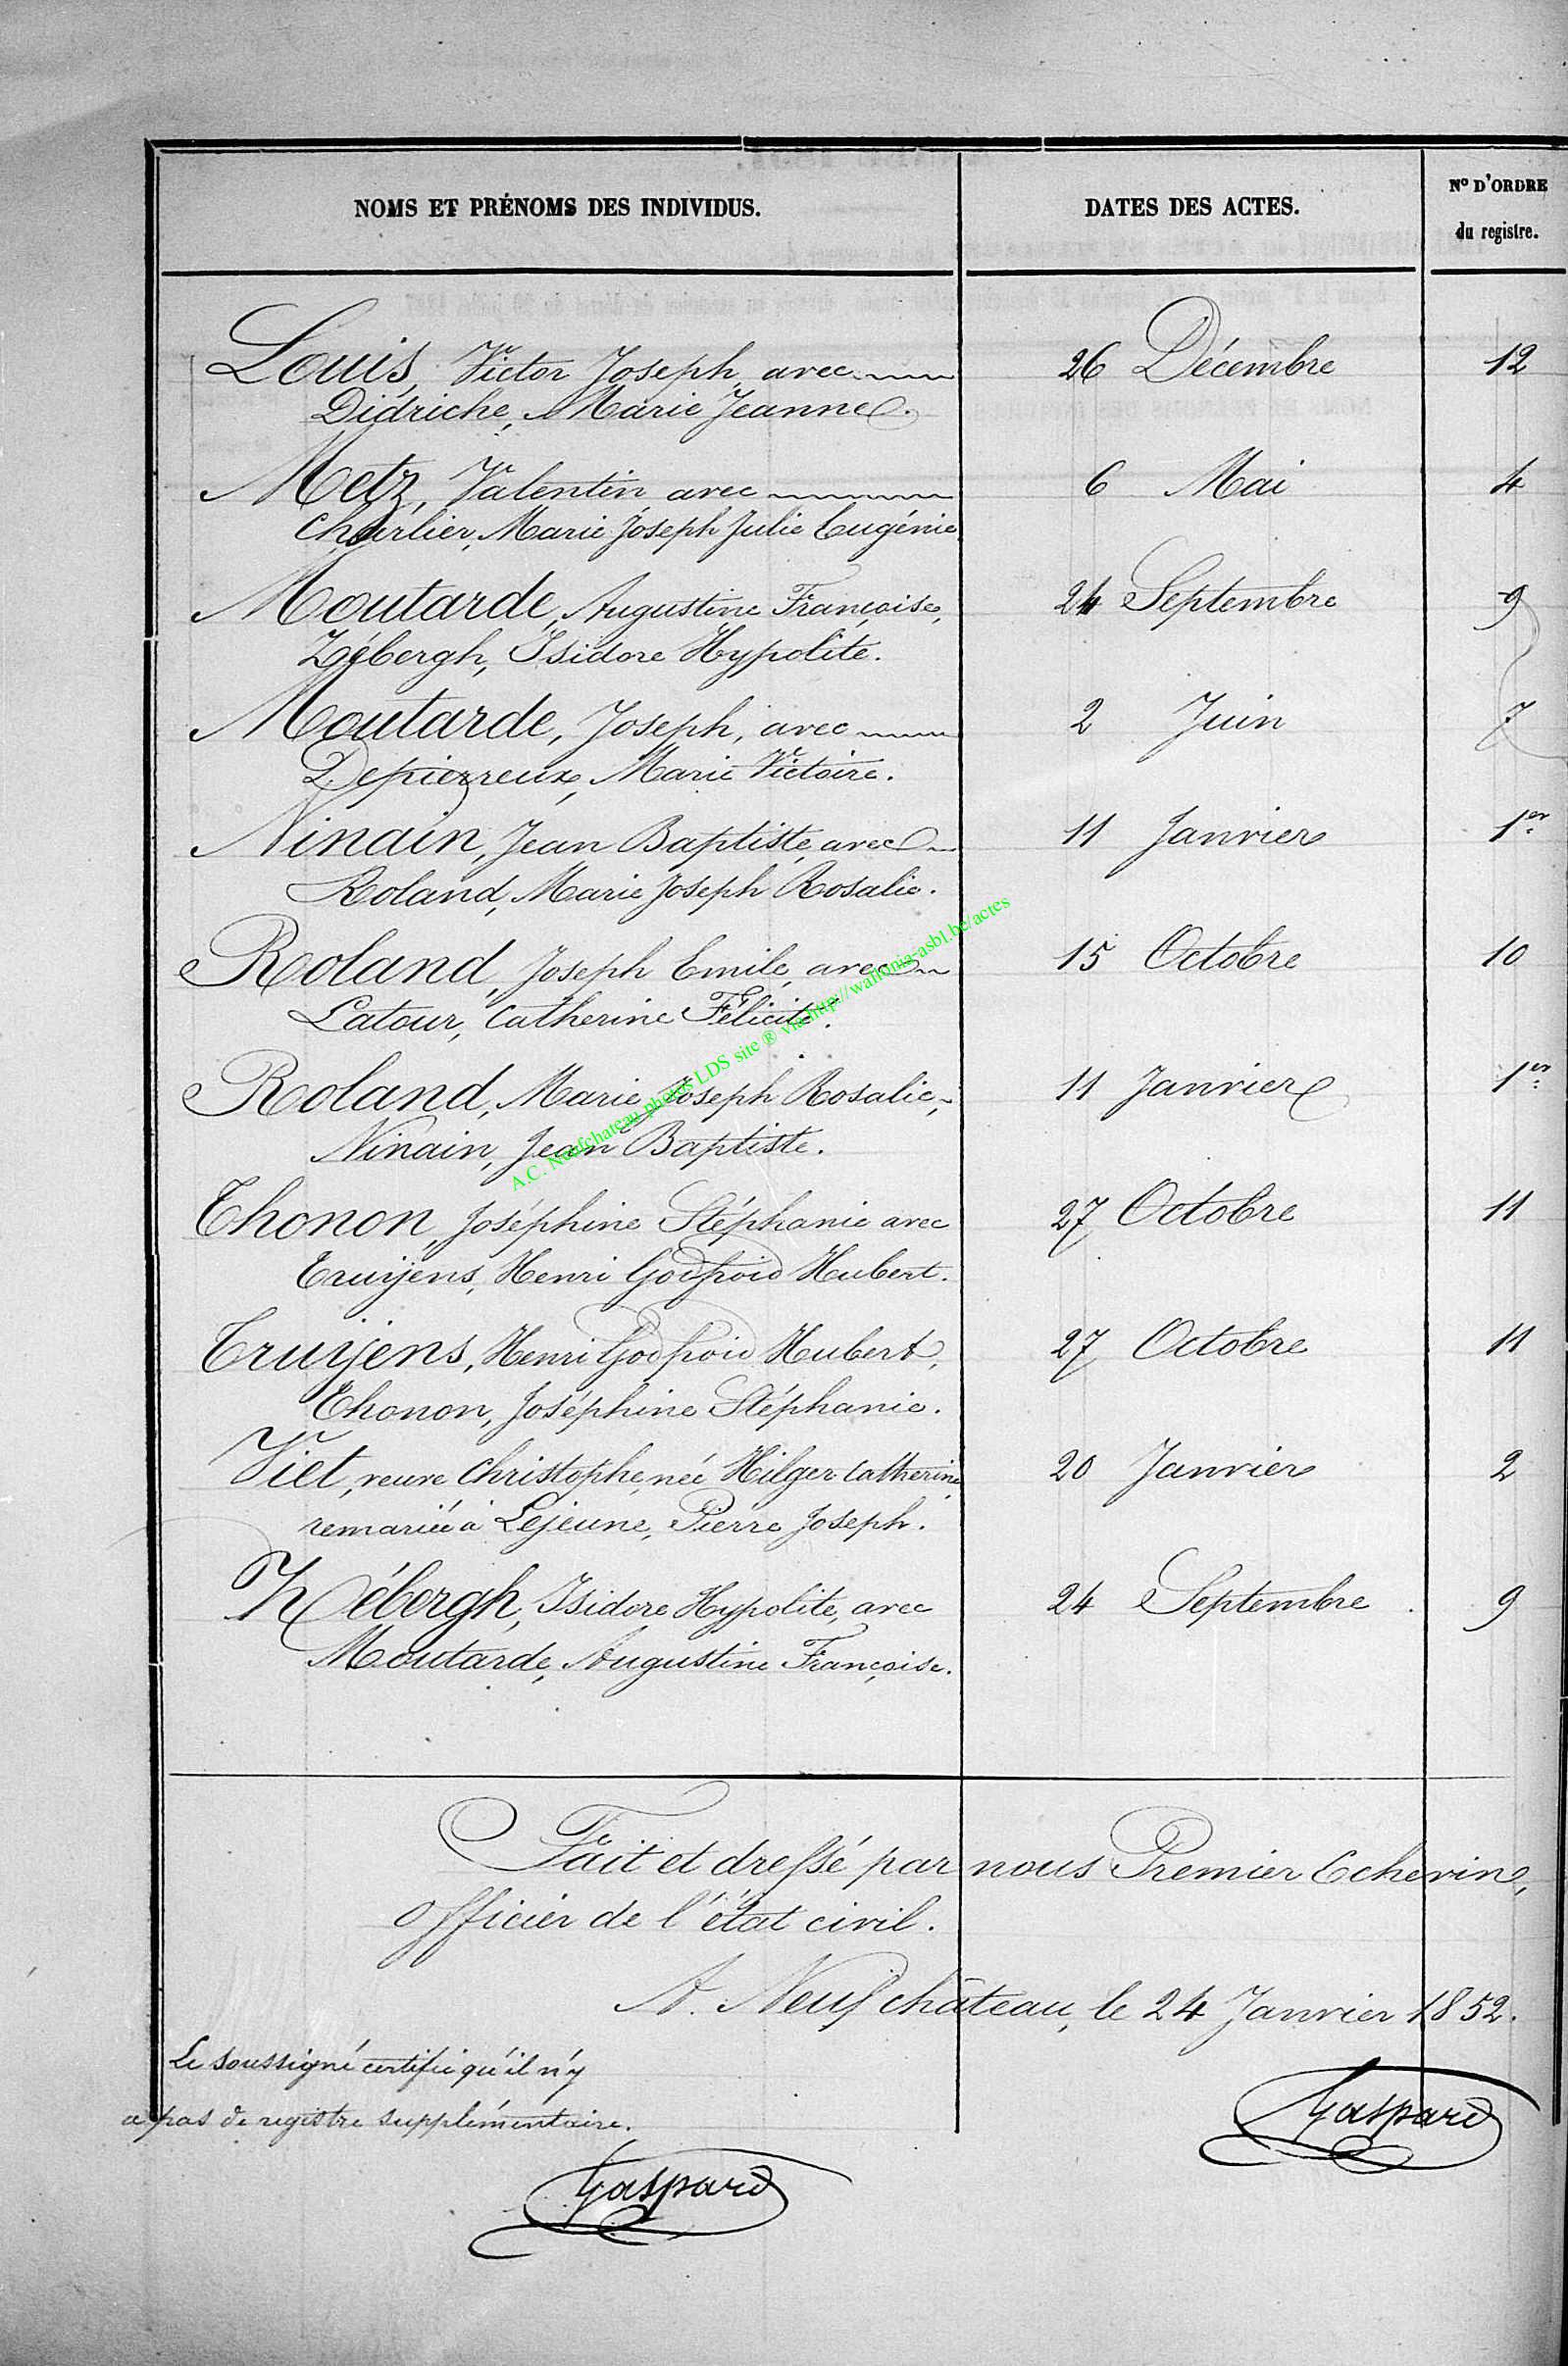 NOMS ET PRÉNOMS DES INDIVIDUS. DATES DES ACTES. N° D'ORDRE
du registre.
Louis, Victor Joseph, avec 26 Décembre 12
Didriche, Marie Jeanne.
Metz, Valentin, avec 6 Mai 4
Charlier, Marie Joseph Julie Eugénie
Moutarde, Augustine Françoise, 24 Septembre 9
Zébergh, Isidore Hypolite.
Moutarde, Joseph, avec 2 Juin 7
Depierreux, Marie Victoire.
Ninain, Jean Baptiste, avec 11 Janvier 1er
Roland, Marie Joseph Rosalie.
Roland, Joseph Emile, avec 15 Octobre 10
Latour, Catherine Félicité.
Roland, Marie Joseph Rosalie, 11 Janvier 1er
Ninain, Jean Baptiste.
A.C. Neufchateau photos LDS site ® via http://wallonia-asbl.be/actes
Thonon, Joséphine Stéphanie avec 27 Octobre 11
Truyens, Henri Godfroid Hubert.
Truyens, Henri Godfroid Hubert, 27 Octobre 11
Thonon, Joséphine Stéphanie.
Viet, veuve Christophe, née Hilger Catherine 20 Janvier 2
remariée à Lejeune, Pierre Joseph.
Zébergh, Isidore Hypolite, avec 24 Septembre 9
Moutarde, Augustine Françoise.
Fait et dressé par nous Premier Echevin,
officier de l'état civil.
A Neufchâteau, le 24 Janvier 1852.
Le soussigné certifie qu'il n'y
a pas de registre supplémentaire.
Gaspard
Gaspard